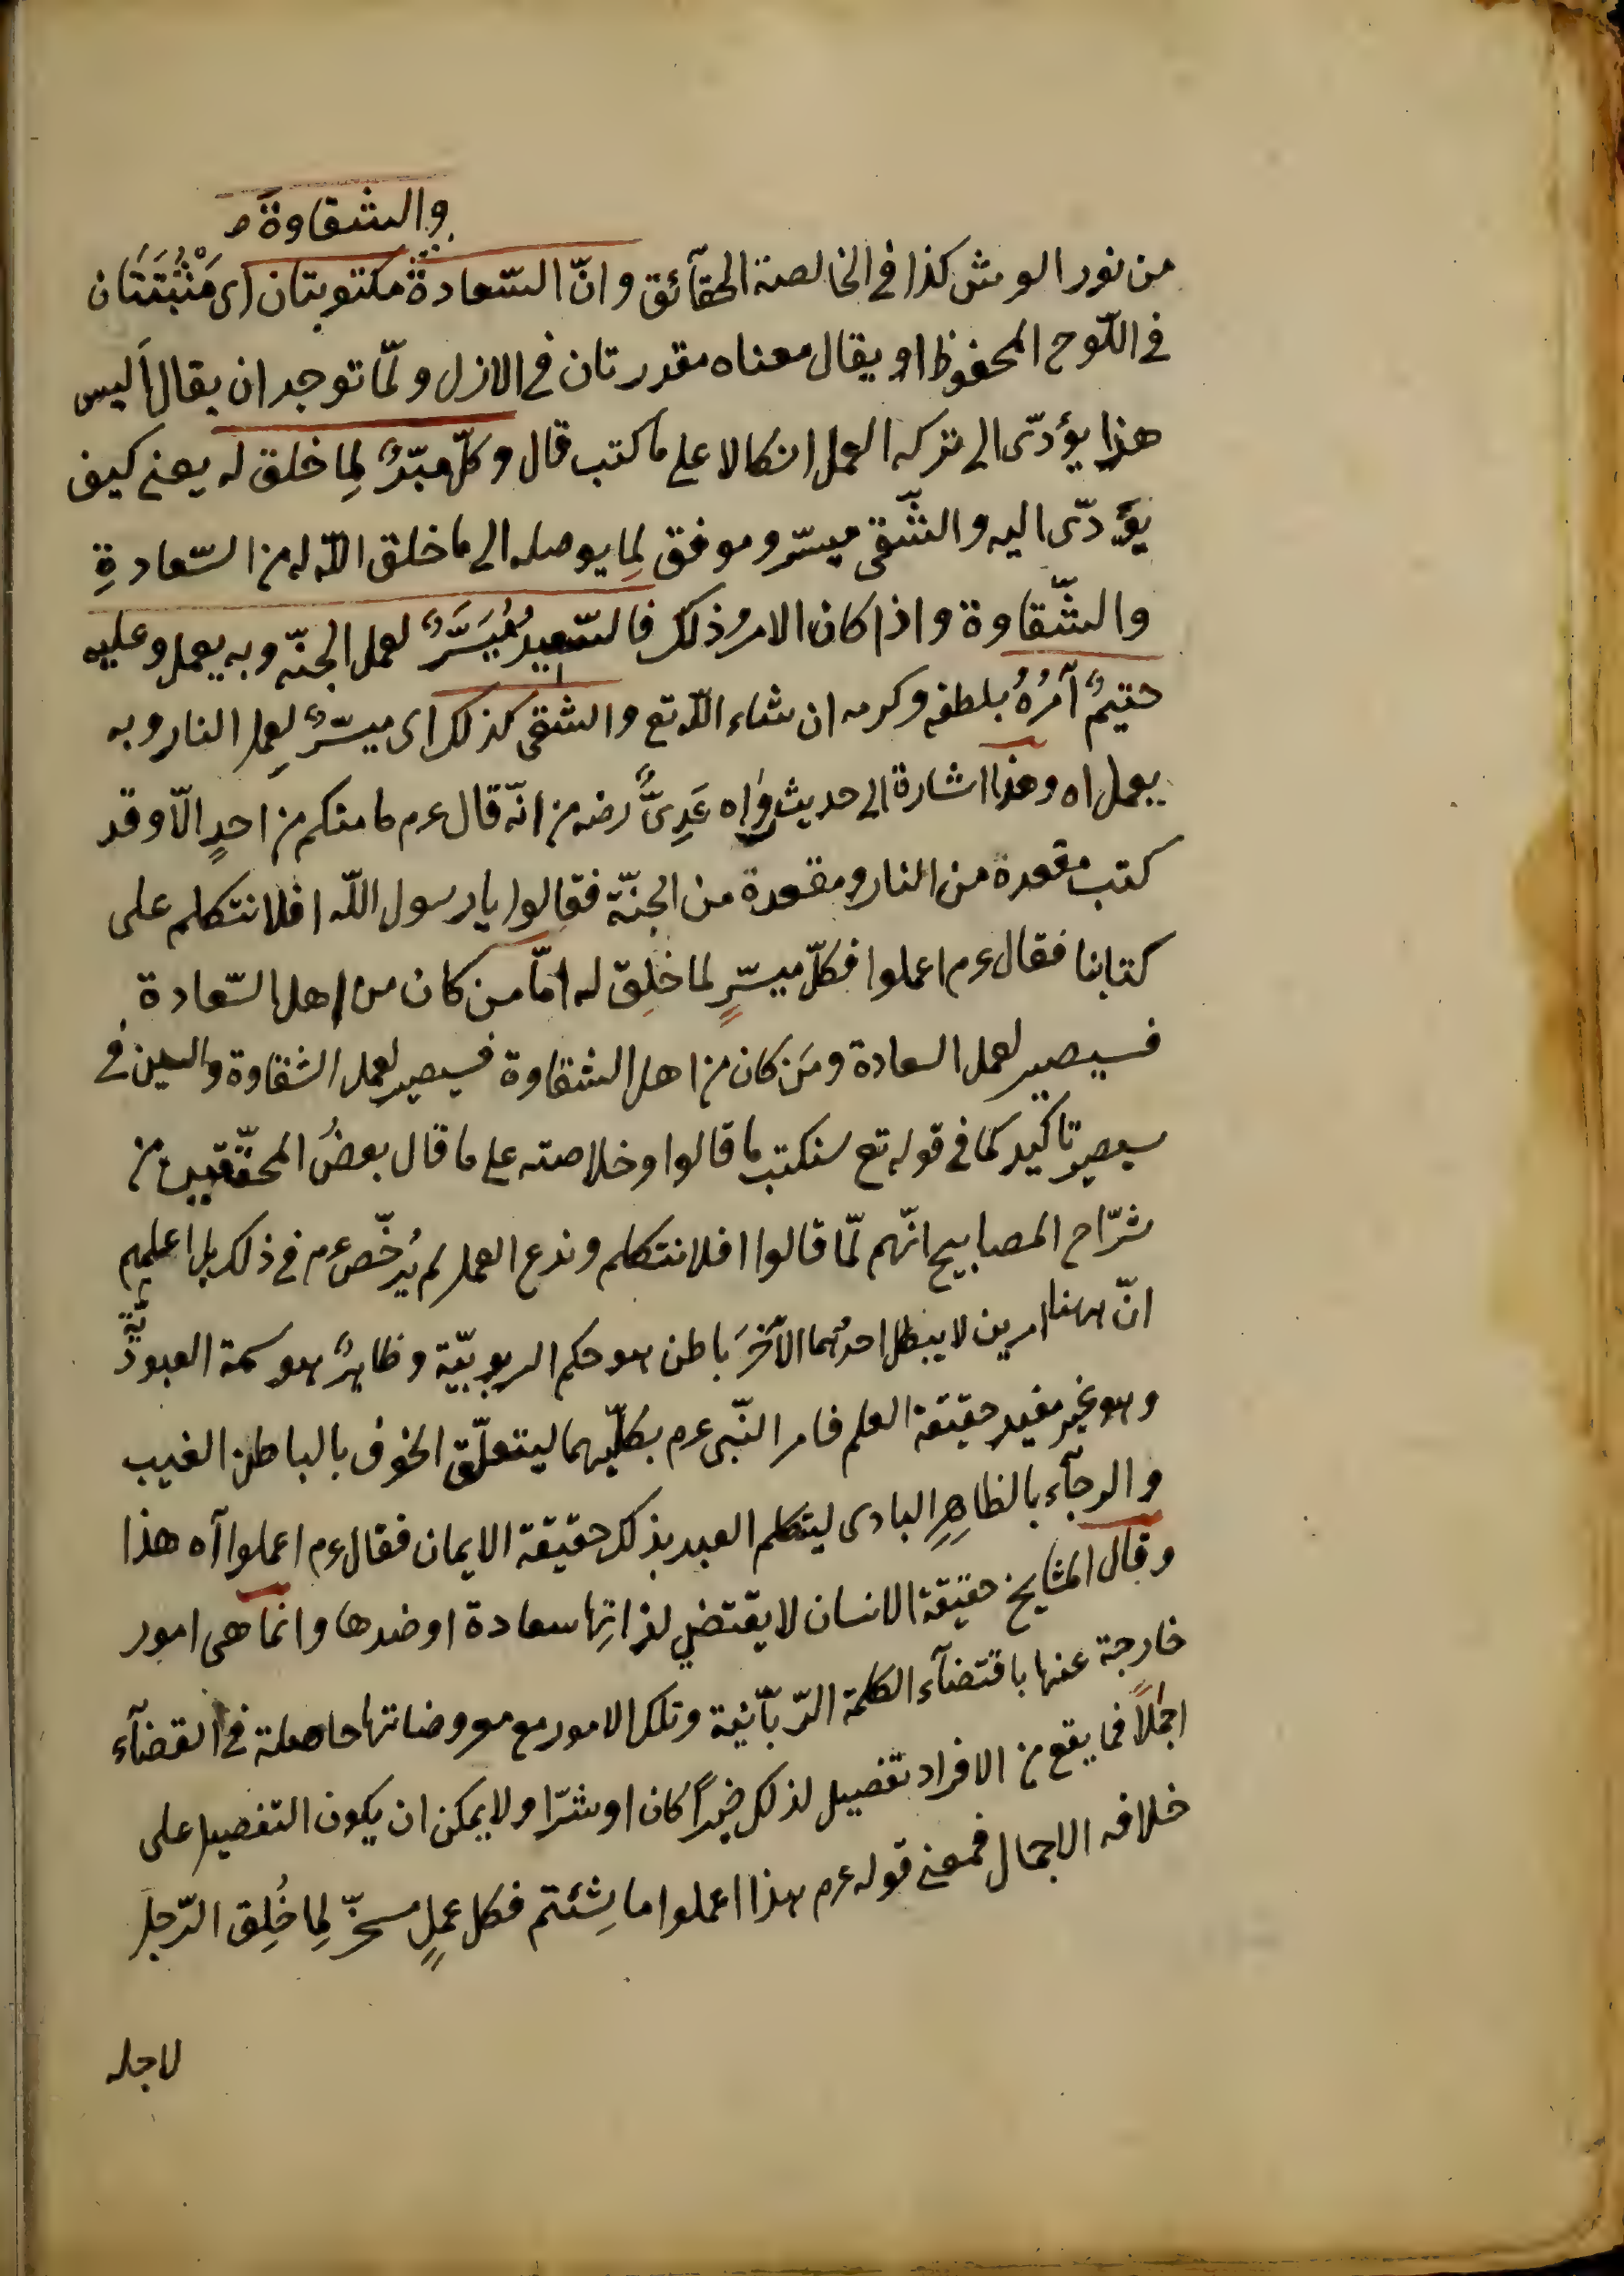 والشقاوة صـ
من نور العرش كذا في الخالصة الحقآئق وانّ السّعادة مكتوبتان اى مَثْبُتَتَان
في اللّوح المحفوظ او يقال معناه مقدرتان في الازل ولمّا توجد ان يقال أليس
هذا يؤدّى الى تركه العمل اتكالا على ما كتب قال وكلّ ميسّرٌ لِما خلق له يعنى كيف
يؤَدّى اليه والشّقى ميسّر وموفق لِما يوصله الى ما خلق اللّه له من السّعادةِ
والشّقاوة واذا كان الامرُ ذلك فالسّعيد مُيَسَّرٌ لعمل الجنّه وبه يعمل وعليه
حتيمٌ آمرُهُ بلطفه وكرمه ان شاء اللّه تع والشقى كذلك اى ميسّرٌ لِعمل النار وبه
يعمل اه وهذا اشارة الى حديث رواه عَدِىٌّ رضه من انّه قال عم ما منكم من احدٍ الّا وقد
كتب مقعدة من النار ومقعدة من الجنّة فقالوا يا رسول اللّه افلا نتكلم على
كتابنا فقال عم اعملوا فكلّ ميسّرٍ لما خُلِق له امّا من كان من اهل السّعادة
فسيصير لعمل السعادة ومَن كان من اهل الشقاوة فسيصير لعمل الشقاوة والسين في
سيصير تاكيد كما في قوله تع سنكتب ما قالوا وخلاصته على ما قال بعضُ المحقّقين من
شرّاح المصابيح انّهم لمّا قالوا افلا نتكلم وندع العمل لم يُرخّص عم في ذلك بل اعلمهم
انّ ههنا امرين لا يبطل احدُهما الآخَرَ باطن هو حكم الربوبيّة وظاهرٌ هو سمة العبوديّة
وهو غير مفيد حقيقة العلم فامر النّبى عم بكلّيهما ليتعلّق الخوف بالباطن الغيب
والرجآء بالظاهِرِ البادى ليتكلم العبد بذلك حقيقة الايمان فقال عم اعملوا آه هذا
وقال المشايخ حقيقة الانسان لا يقتضي لذاتِها سعادة او ضدها وانما هى امور
خارجة عنها باقتضآء الكلمة الرّبآنية وتلك الامور مع معروضاتها حاصلة في القضآء
اجملاً فما يقع من الافراد تفصيل لذلك خيراً كان او شرّا ولا يمكن ان يكون التفصيل على
خلافه الاجمال فمعنى قوله عم هذا اعملوا ما شِئتم فكل عملٍ مسخّر لِما خُلِق الرّجل
لاجله